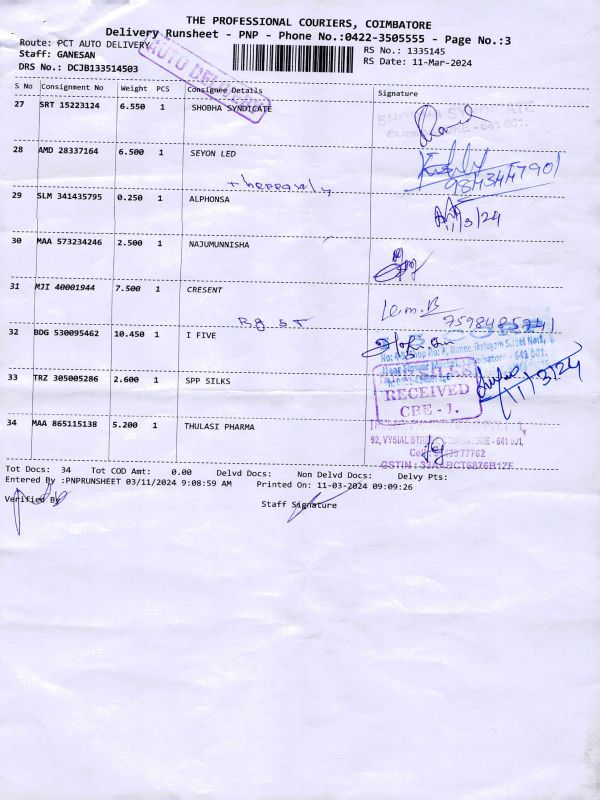 THE PROFESSIONAL COURIERS, COIMBATORE
Delivery Runsheet - PNP - Phone No.:0422-3505555 - Page No.:3
Route: PCT AUTO DELIVERY
RS No.: 1335145
Staff: GANESAN
RS Date: 11-Mar-2024
DRS No.: DCJB133514503
AUTO DELIVERY
S No Consignment No Weight PCS Consignee Details Signature
27 SRT 15223124 6.550 1 SHOBHA SYNDICATE
- 641 001.
28 AMD 28337164 6.500 1 SEYON LED
9843447901
29 SLM 341435795 0.250 1 ALPHONSA
11/3/24
30 MAA 573234246 2.500 1 NAJUMUNNISHA
31 MJI 40001944 7.500 1 CRESENT
7598485741
32 BDG 530095462 10.450 1 I FIVE
33 TRZ 305005286 2.600 1 SPP SILKS
RECEIVED
CBE - 1.
11/3/24
34 MAA 865115138 5.200 1 THULASI PHARMA
92, VYSIAL STREET, COIMBATORE - 641 001.
Tot Docs: 34 Tot COD Amt: 0.00 Delvd Docs: Non Delvd Docs: Delvy Pts:
Entered By :PNPRUNSHEET 03/11/2024 9:08:59 AM Printed On: 11-03-2024 09:09:26
Verified By
Staff Signature